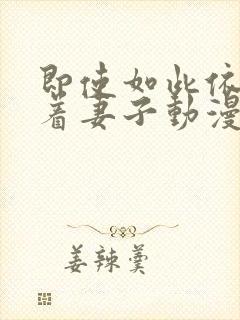 即使如此依
着妻子動漫
姜辣羹